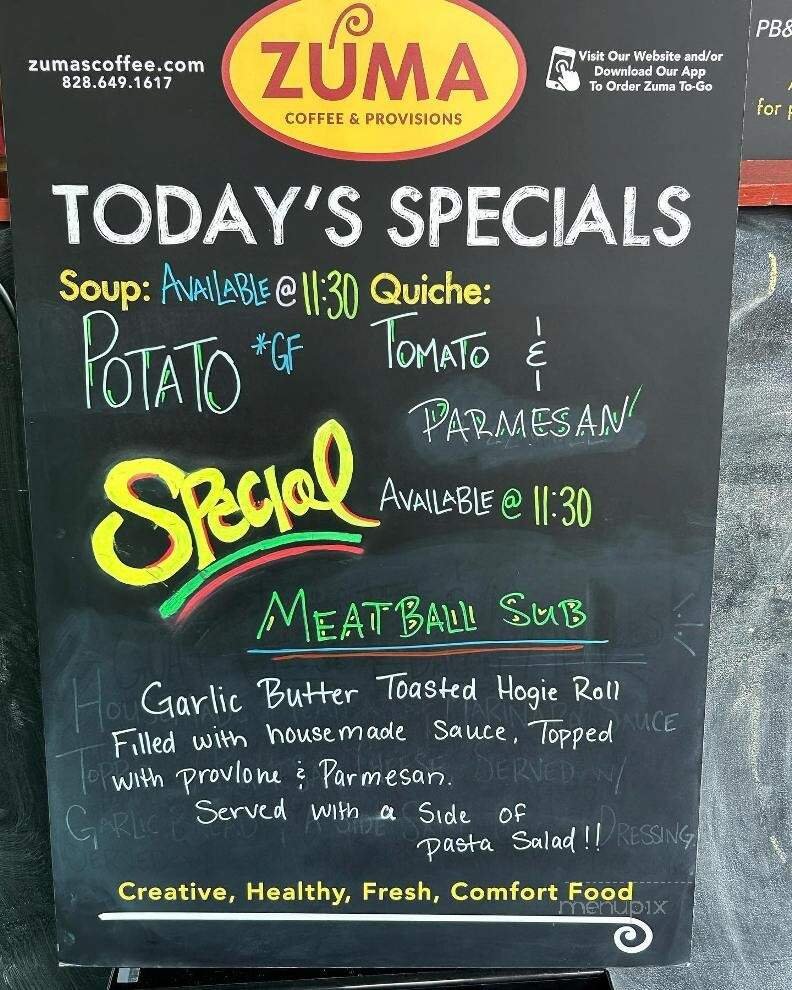 zumascoffee.com
828.649.1617
ZUMA
COFFEE & PROVISIONS
Visit Our Website and/or
Download Our App
To Order Zuma To-Go
PB&
for
TODAY'S SPECIALS
Soup: AVAILABLE @ 11:30 Quiche:
POTATO *GF
TOMATO &
PARMESAN
Special AVAILABLE @ 11:30
MEATBALL SUB
Garlic Butter Toasted Hogie Roll
Filled with housemade Sauce, Topped
with provlone & Parmesan.
Served with a Side of
pasta Salad!!
SAUCE
DERVED W/
DRESSING
Creative, Healthy, Fresh, Comfort Food
menupix